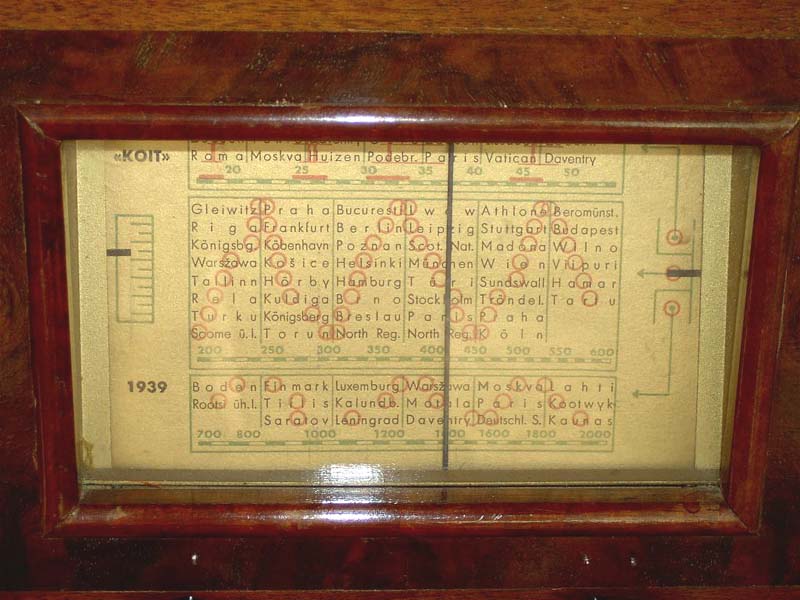 «KOIT»
Rama Moskva Huizen Podebr. Paris Vatican Daventry
20 25 30 35 40 45 50
Gleiwitz Praha Bucuresti Lwow Athlone Beromünst.
Riga Frankfurt Berlin Leipzig Stuttgart Budapest
Königsbg. Köbenhavn Poznan Scot. Nat. Madona Wilno
Warszawa Košice Helsinki München Wien Viipuri
Tallinn Hörby Hamburg Türi Sundswall Hamar
Rela Kuldiga Brno Stockholm Tröndel. Tartu
Turku Königsberg Breslau Paris Praha
Soome ü.l. Torun North Reg. North Reg. Köln
200 250 300 350 400 450 500 550 600
1939
Boden Finmark Luxemburg Warszawa Moskva Lahti
Rootsi üh.l. Tiflis Kalundb. Motala Paris Kootwyk
Saratov Leningrad Daventry Deutschl. S. Kaunas
700 800 1000 1200 1400 1600 1800 2000